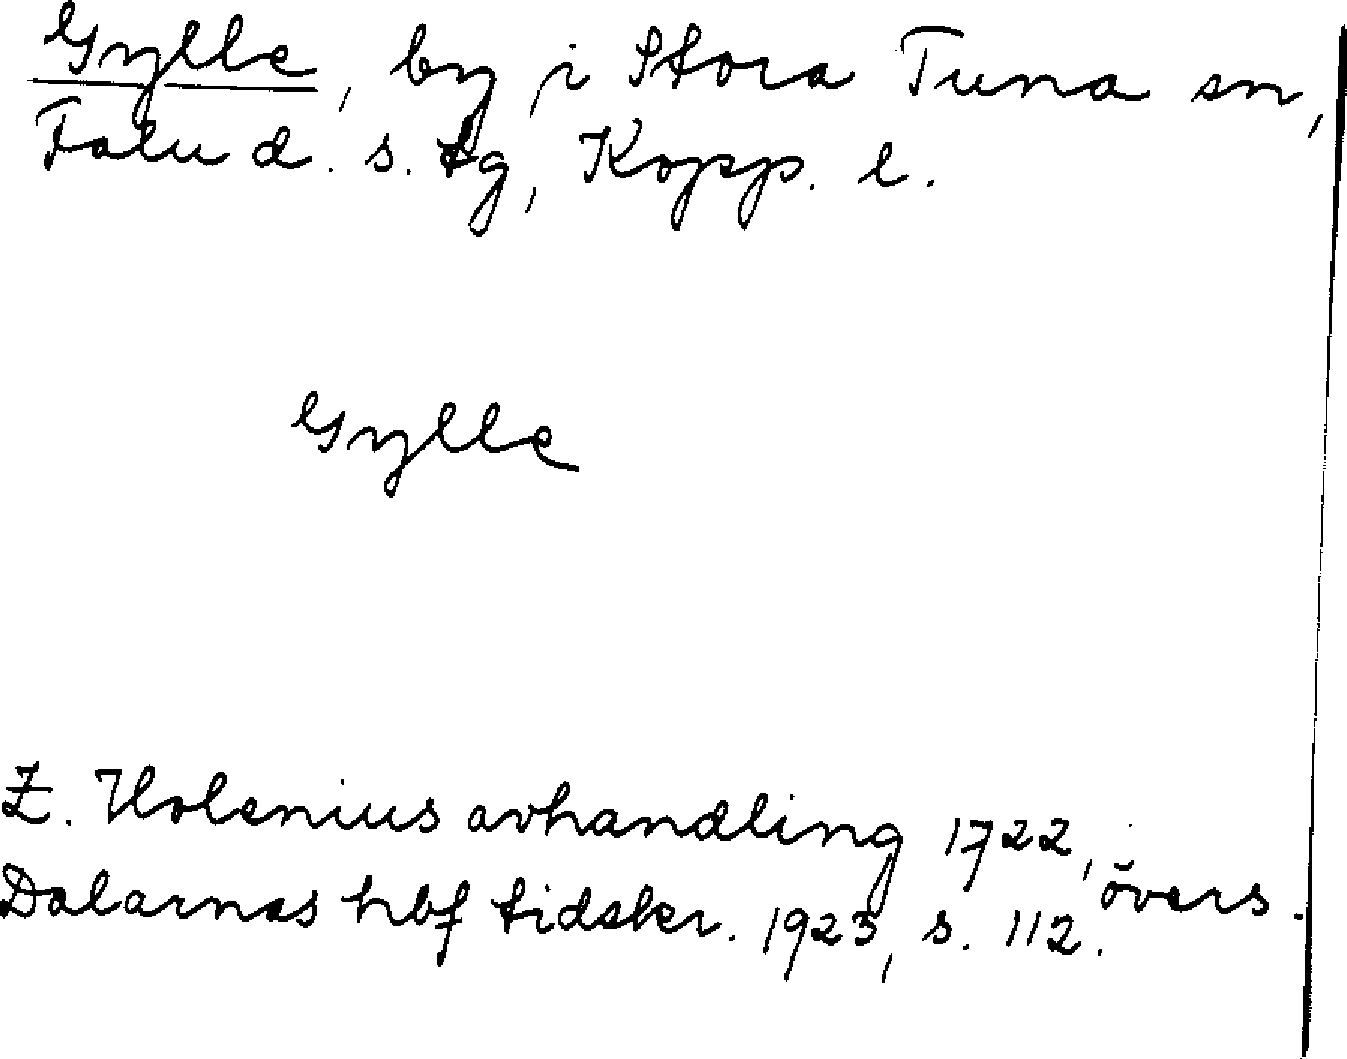 Gylle, by i Stora Tuna sn,
Falu d. s. tg, Kopp. l.
Gylle
Z. Holenius avhandling 1722, övers.
Dalarnas hbf tidskr. 1923, s. 112.